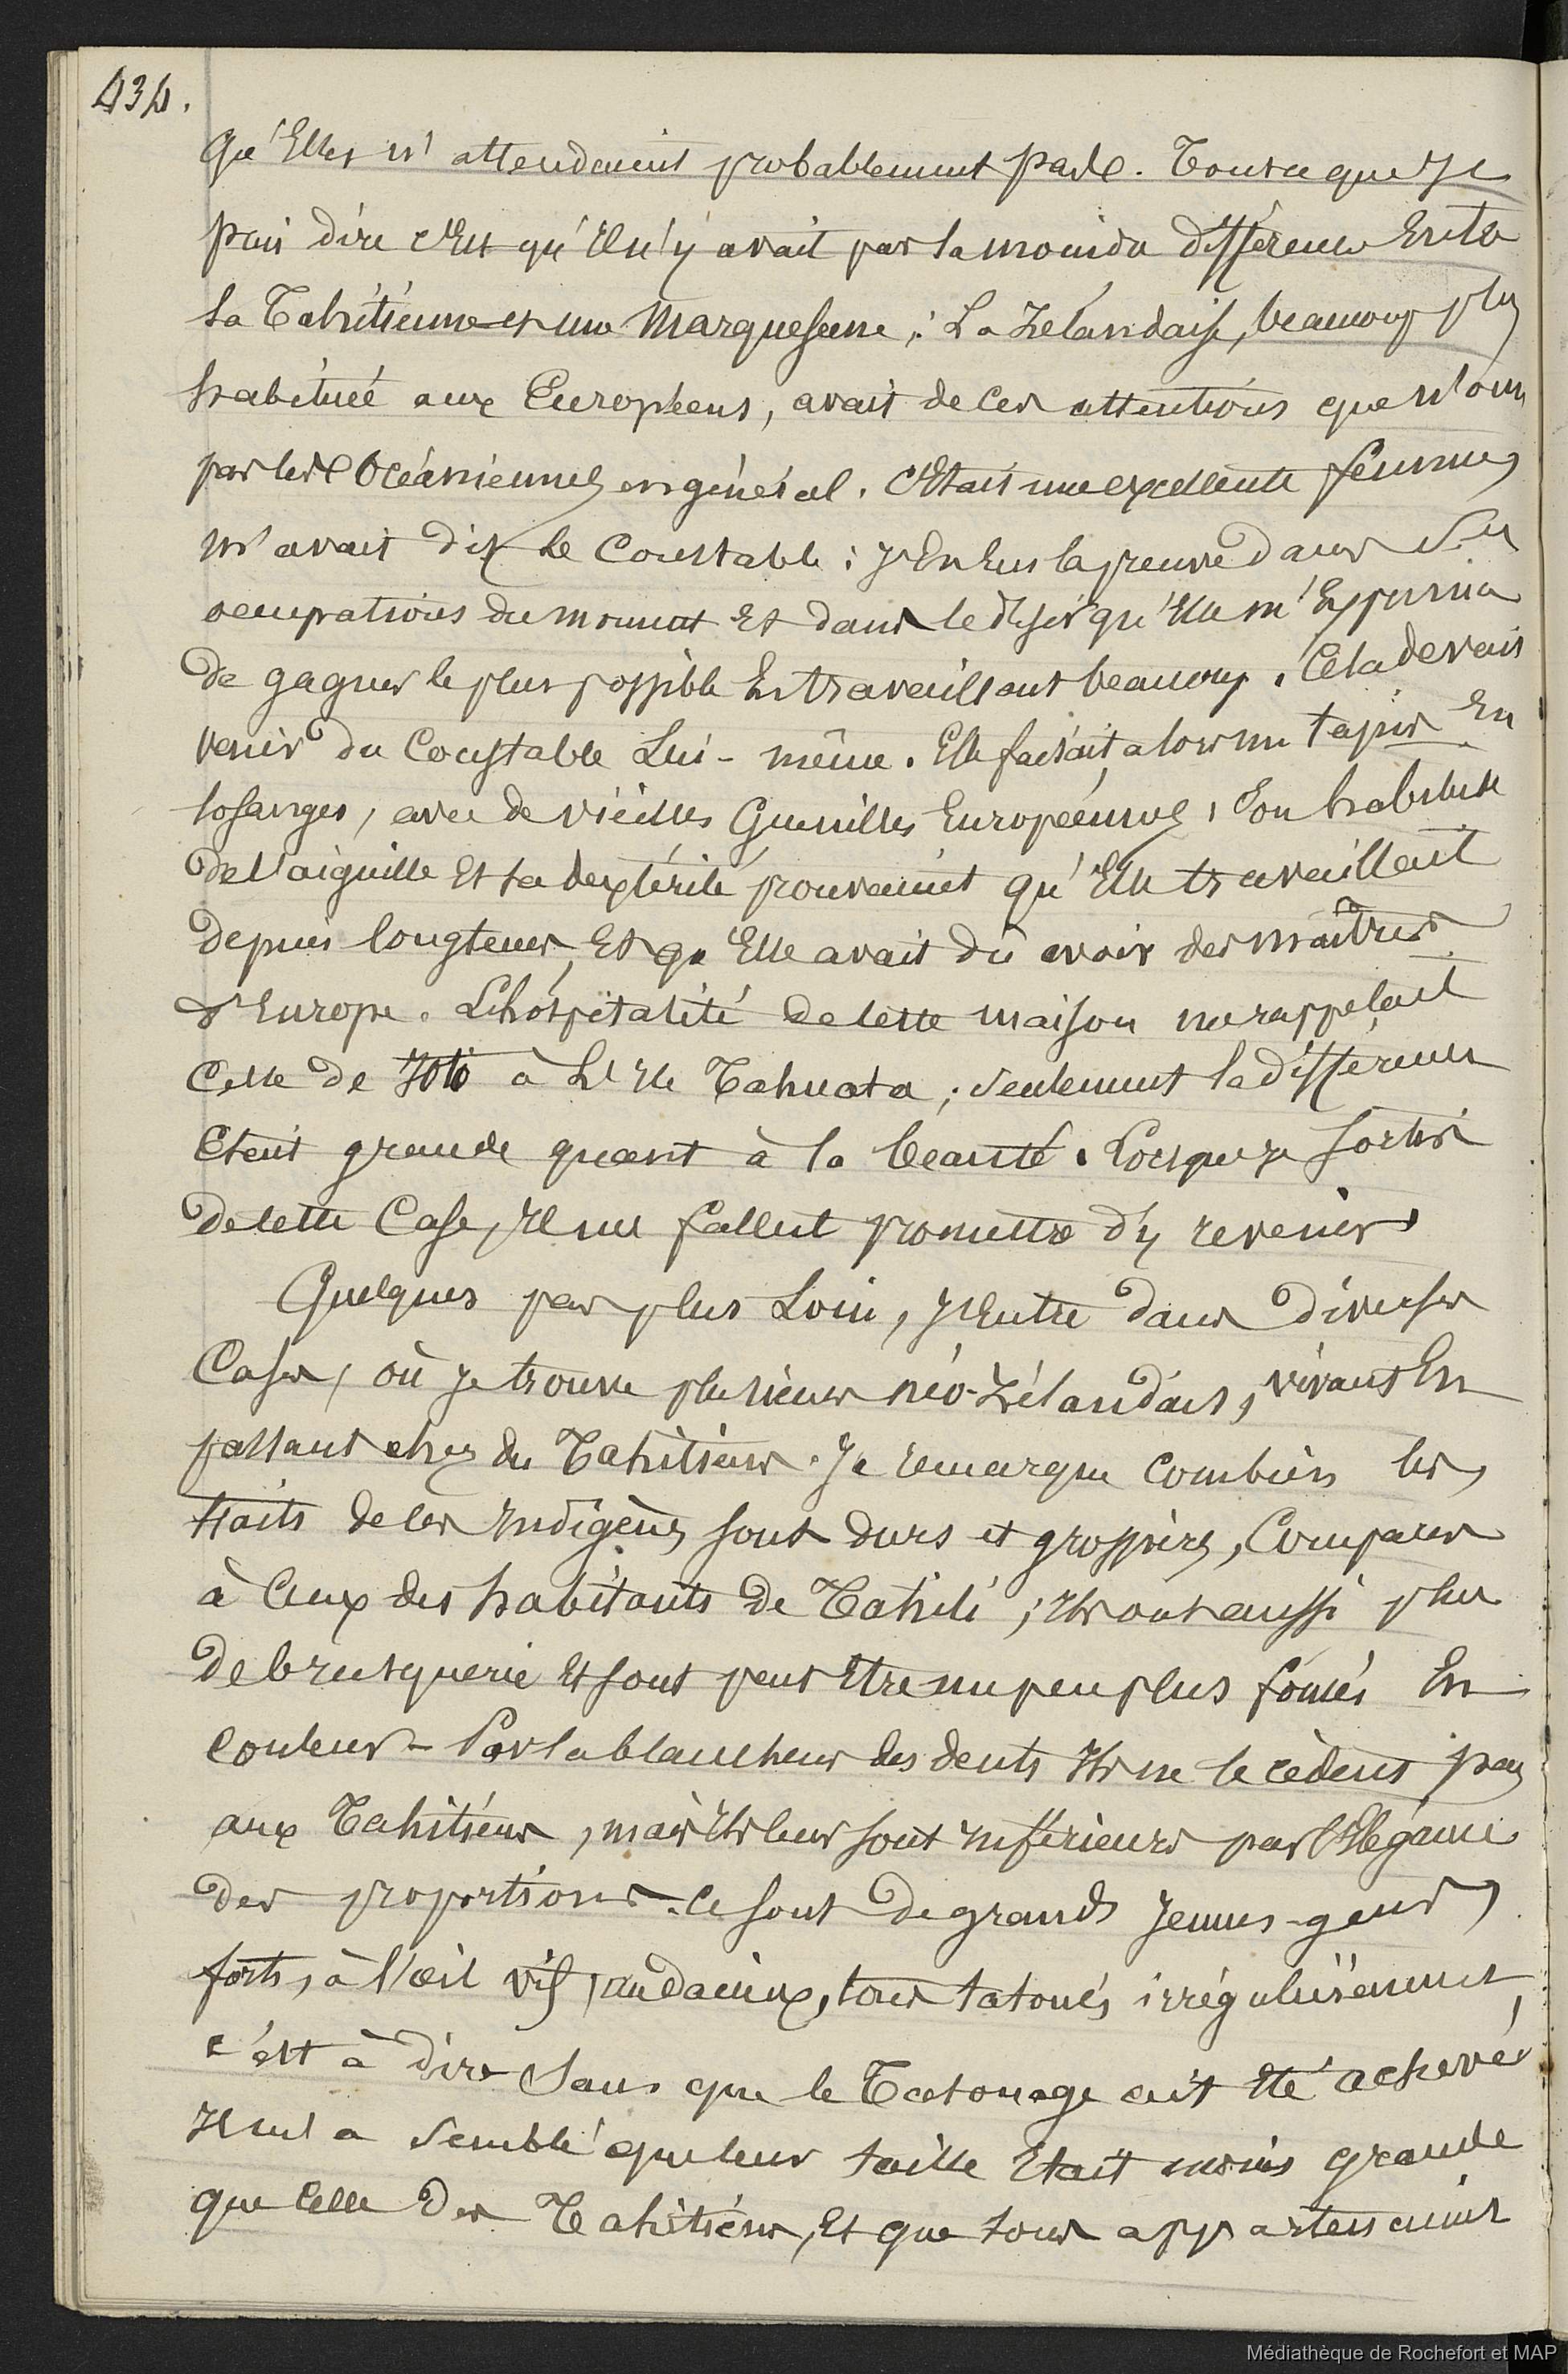 434.
qu'Elles n'attendaient probablement pas. Tout ce que Je
puis dire c'Est qu'Il n'y avait pas la moindre différence Entre
la Tahitienne et une Marquesanne ; La Zélandaise, beaucoup plus
habituée aux Européens, avait de ces attentions que n'ont
pas les Océaniennes en général. C'Etait une excellente femme,
m'avait dit le Constable ; J'En Eus la preuve dans ses
occupations du moment Et dans le désir qu'Elle m'Exprima
de gagner le plus possible En travaillant beaucoup. Cela devait
venir du Constable Lui-même. Elle faisait alors un tapis En
losanges, avec de vieilles Guenilles Européennes, Son habitude
de l'aiguille Et sa dextérité prouvaient qu'Elle travaillait
depuis longtems, Et qu'Elle avait dû avoir des maîtres
d'Europe. L'hospitalité de cette maison me rappelait
Celle de à L'Ile Tahuata ; seulement la différence
Etait grande quant à la beauté. Lorsque je sortis
de cette Case, Il me fallut promettre d'y revenir.
Quelques pas plus Loin, J'Entre dans diverses
Cases, où Je trouve plusieurs néo-Zélandais, vivant En
passant chez des Tahitiens. Je remarque combien les
traits de ces Indigènes sont durs et grossiers, Comparés
à Ceux des habitants de Tahiti ; Ils ont aussi plus
de brusquerie Et sont peut Etre un peu plus foncés En
couleur - Par la blancheur des dents Ils ne le cèdent pas
aux Tahitiens, mais Ils leur sont Inférieurs par l'Elégance
des proportions. Ce sont de grands Jeunes-gens,
forts, à l'œil vif, audacieux, tous tatoués irrégulièrement,
c'est à dire Sans que le Tatouage ait Eté achevé,
Il m'a semblé que leur taille Etait moins grande
que Celle des Tahitiens, Et que tous appartenaient
Médiathèque de Rochefort et MAP